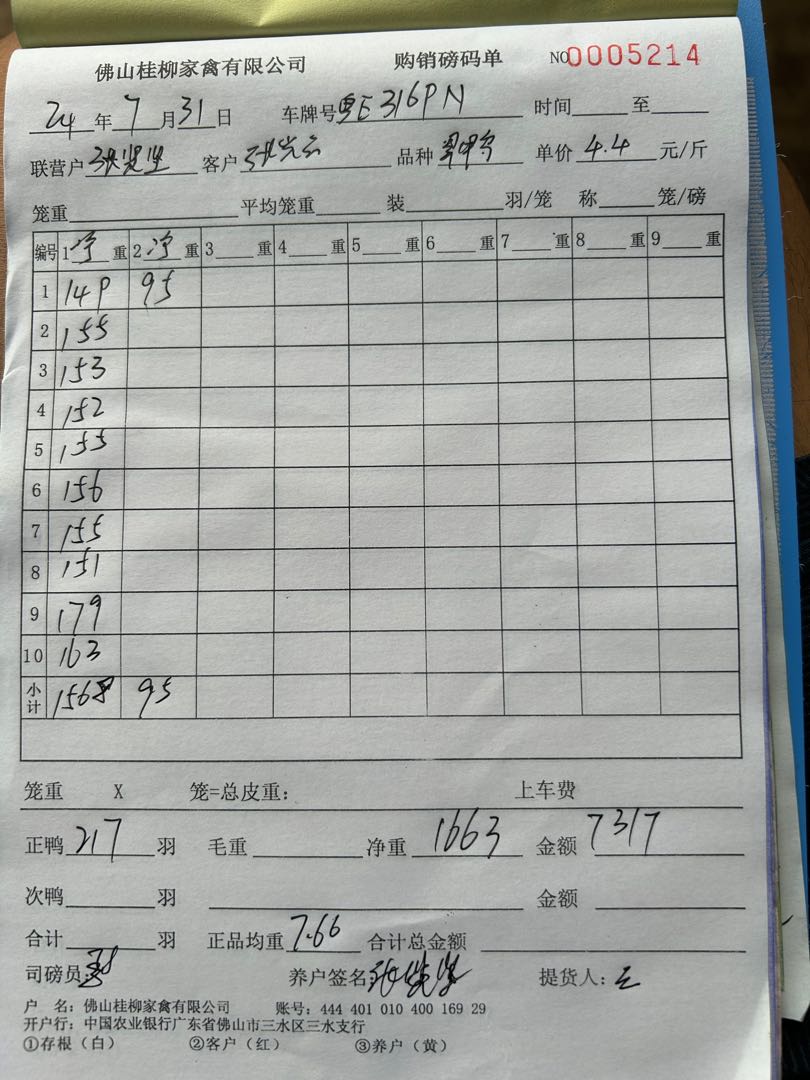 佛山桂柳家禽有限公司 购销磅码单 NO0005214
24年7月31日 车牌号粤E316PN 时间____至____
联营户 客户 品种 单价4.4元/斤
笼重____平均笼重____装____羽/笼 称____笼/磅
编号 1净重 2净重 3__重 4__重 5__重 6__重 7__重 8__重 9__重
1 149 95
2 155
3 153
4 152
5 155
6 156
7 155
8 151
9 179
10 163
小计 1568 95
笼重 X 笼=总皮重： 上车费
正鸭217羽 毛重____净重1663 金额7317
次鸭____羽 ____金额____
合计____羽 正品均重7.66 合计总金额____
司磅员: 养户签名: 提货人:
户 名：佛山桂柳家禽有限公司 账号：444 401 010 400 169 29
开户行：中国农业银行广东省佛山市三水区三水支行
①存根（白） ②客户（红） ③养户（黄）